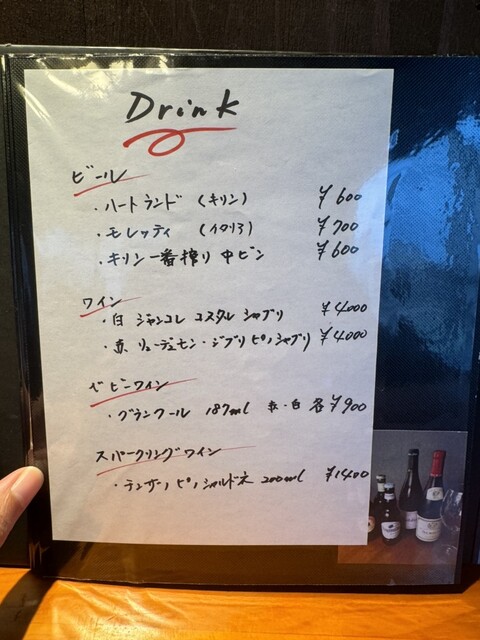 Drink
ビール
・ハートランド (キリン) ¥600
・モレッティ (イタリア) ¥700
・キリン一番搾り 中ビン ¥600
ワイン
・白 ジャンコレ コスタル シャブリ ¥4000
・赤 リュー・デュモン・ジブリ ピノシャブリ ¥4000
ベビーワイン
・グランクール 187ml 赤・白 各¥900
スパークリングワイン
ピノシャルドネ 200ml ¥1400